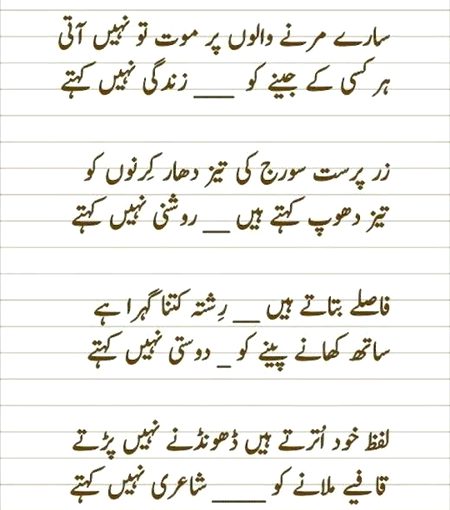 سارے مرنے والوں پر موت تو نہیں آتی
ہر کسی کے جینے کو ____ زندگی نہیں کہتے
زر پرست سورج کی تیز دھار کِرنوں کو
تیز دھوپ کہتے ہیں ___ روشنی نہیں کہتے
فاصلے بتاتے ہیں ___ رِشتہ کتنا گہرا ہے
ساتھ کھانے پینے کو _ دوستی نہیں کہتے
لفظ خود اُترتے ہیں ڈھونڈنے نہیں پڑتے
قافیے ملانے کو _____ شاعری نہیں کہتے